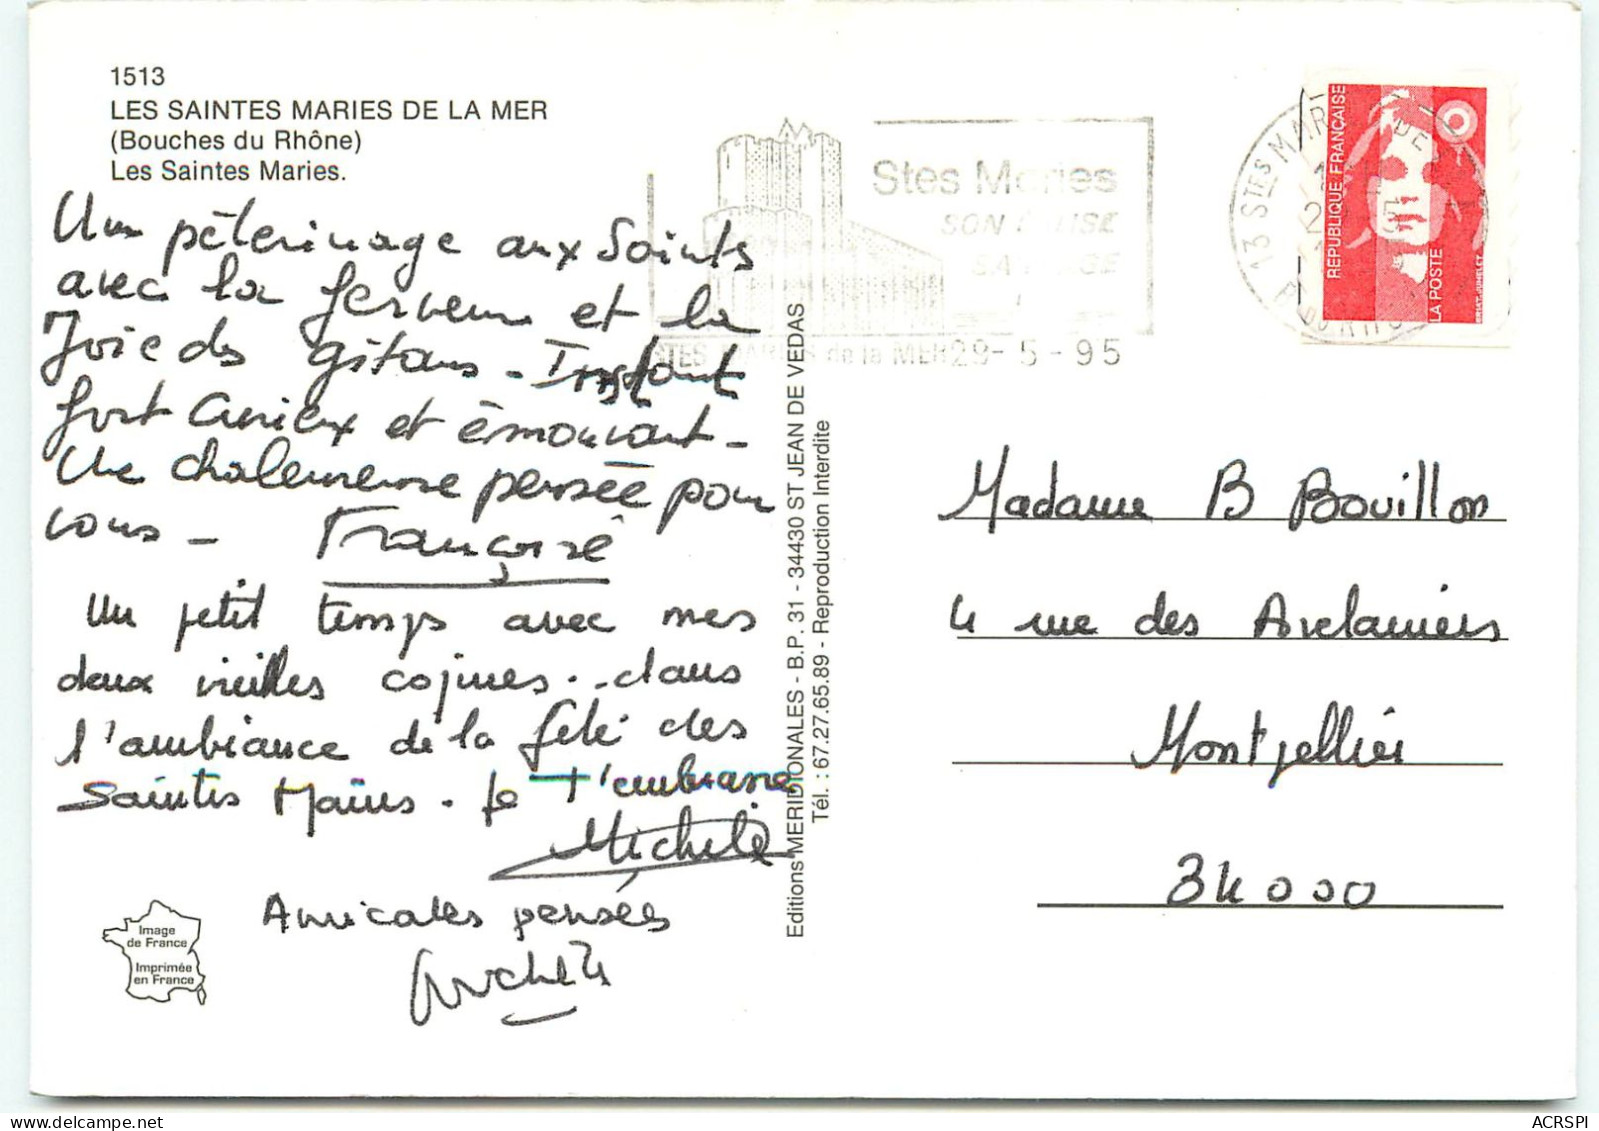 1513
LES SAINTES MARIES DE LA MER
(Bouches du Rhône)
Les Saintes Maries.
Un pèlerinage aux Saints
avec la ferveur et la
Joie des gitans - Instant
fort curieux et émouvant -
Une chaleureuse pensée pour
vous - Françoise
Un petit temps avec mes
deux vieilles copines . . dans
l'ambiance de la fête des
Saintes Maries . Je t'embrasse
Michèle
Amicales pensées
Image
de France
Imprimée
en France
Editions MERIDIONALES - B.P. 31 - 34430 ST JEAN DE VEDAS
Tél. : 67.27.65.89 - Reproduction Interdite
Stes Maries
SON EGLISE
STES MARIES de la MER 29-5-95
13 STES MARIES DE
REPUBLIQUE FRANÇAISE
LA POSTE
Madame B Bouillon
4 rue des Avelaniers
Montpellier
34000
ACRSPI